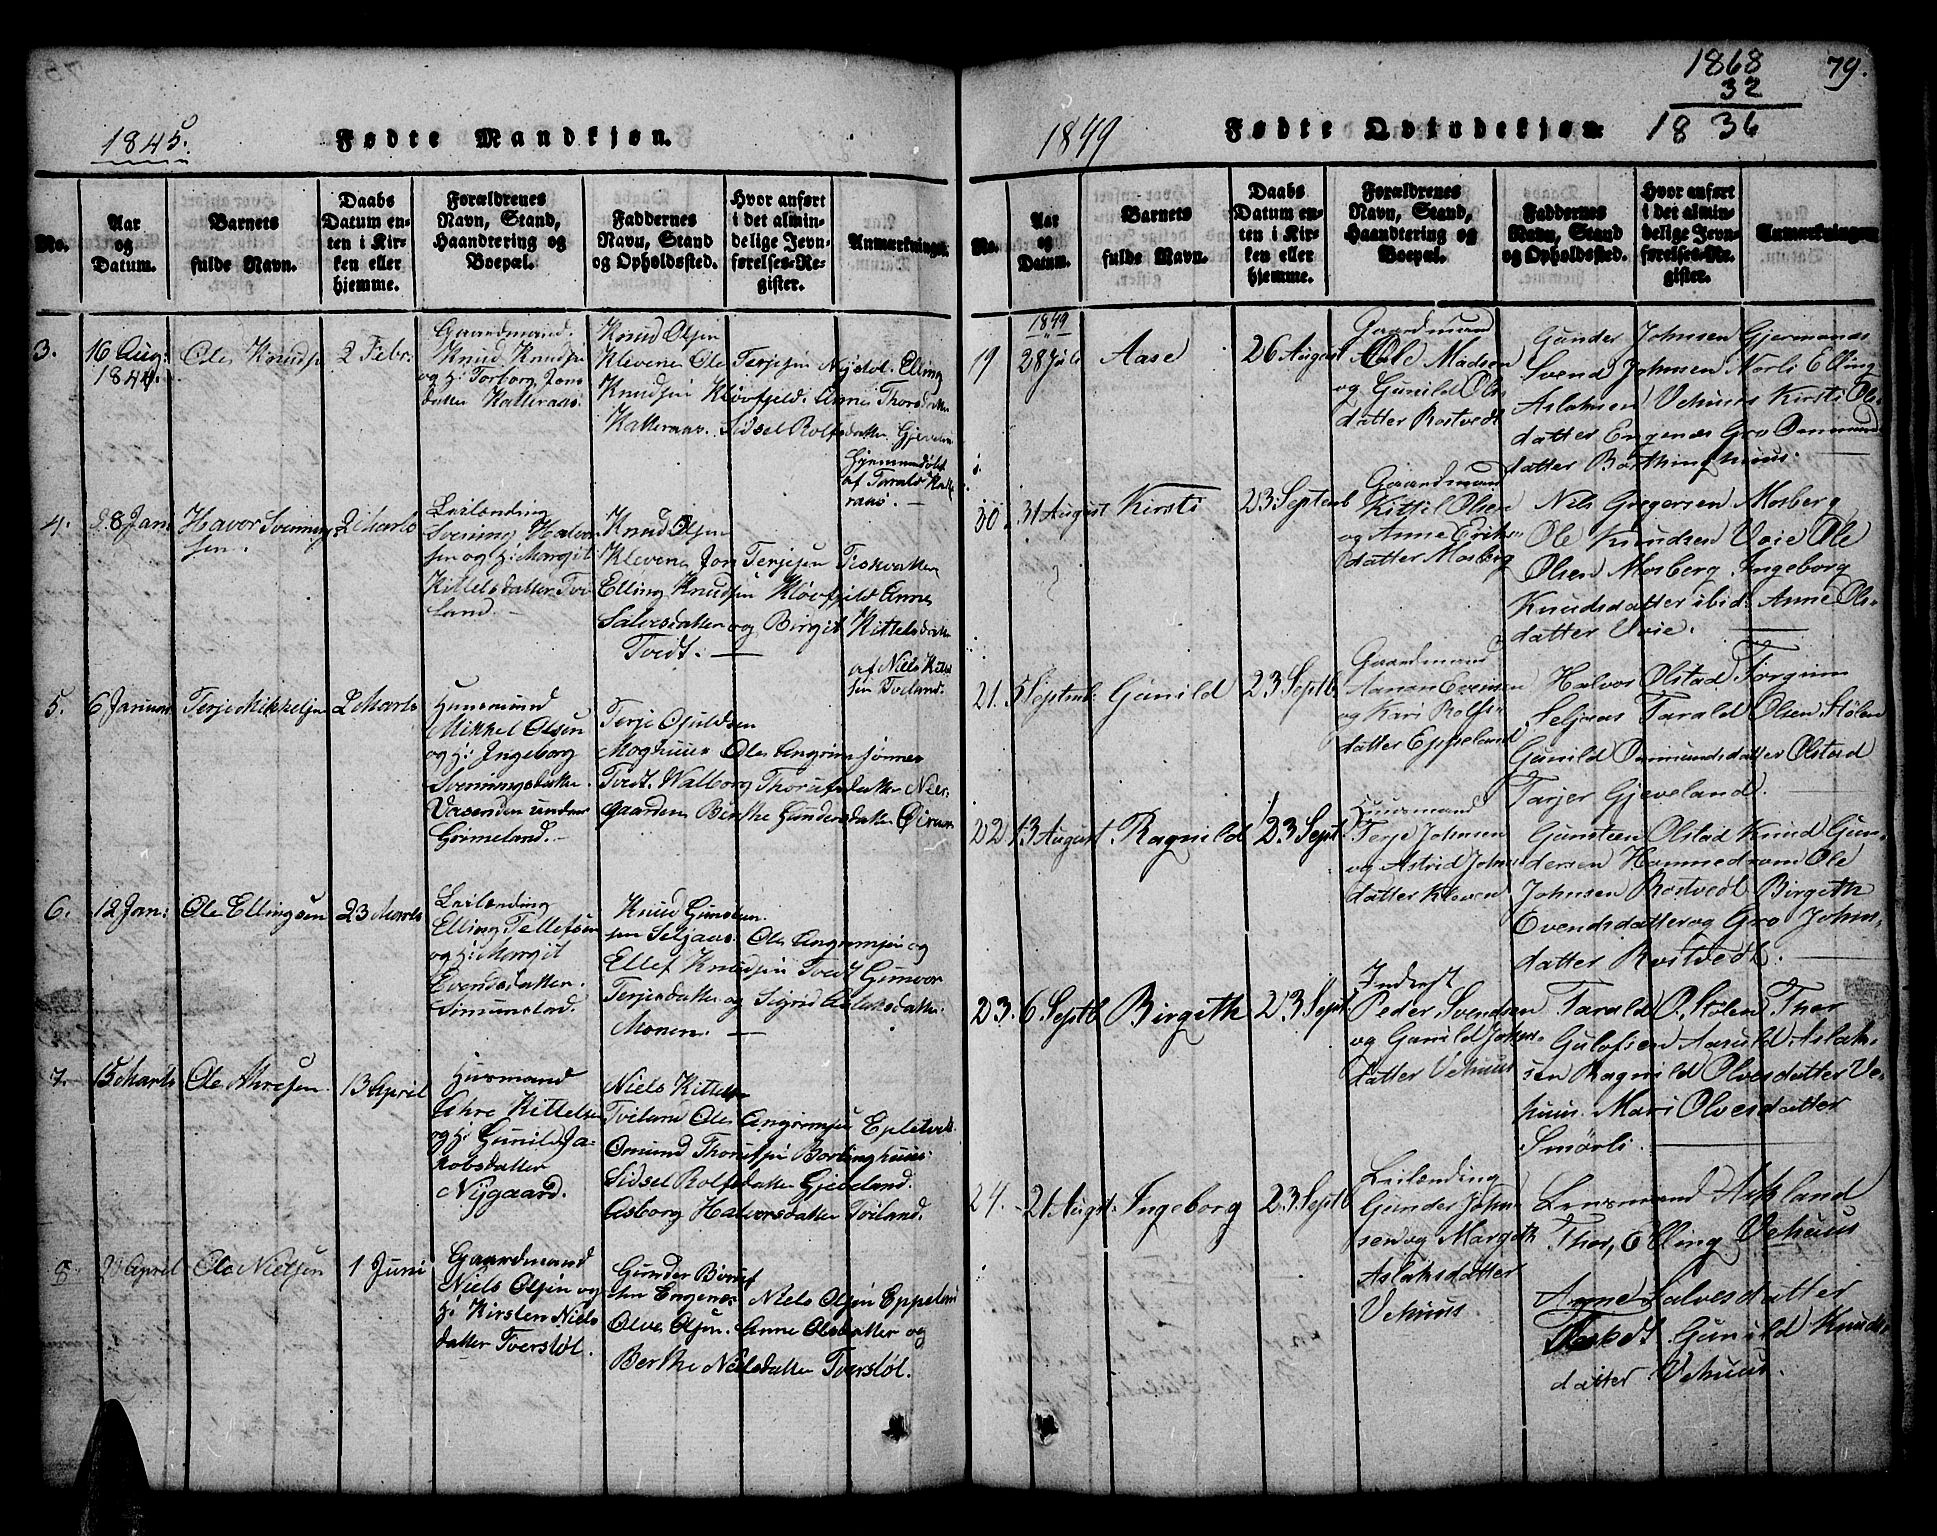 1845.
Fødte Mandkjøn.
No.
Aar og Datum.
Barnets fulde Navn.
Daabs Datum enten i Kirken eller hjemme.
Forældrenes Navn, Stand, Haandtering og Boepæl.
Faddernes Navn, Stand og Opholdssted.
Hvor anført i det almindelige Jevnførelses-Register.
Anmærkninger.
3.
16 Aug:
1844.
Ole Knudsen
2 Febr.
Gaardmand.
Knud Knudsen
og H: Torborg Jons
datter Katteraas
Knud Olsen
Klevene Ole Terjesen Nystøl. Elling
Knudsen Kløvfjeld. Anne Thorsdatter
Katteraas. Sidsel Rolfsdatter Gjeveland
Hjemmedøbt
af Tarald Katte
raas. —
4.
28 Jan:
Havor Svenning
sen.
2 Marts
Leilænding
Svening Halvor
sen og H: Margit
Kittelsdatter Tvi
land. —
Knud Olsen
Klevene Jon Terjesen
Elling Knudsen Kløvfjeld Anne
Salvesdatter og Birgit Kittelsdatter
Tvedt. —
af Niels Kittel
sen Tviland.
5.
6 Januar
Terje Mikkelsen
2 Marts
Husmand
Mikkel Olsen
og H: Ingeborg
Sveningsdatter
Vasenden under
Grimeland. —
Terje Ojuldsen
Moghuus Ole Angrimsønner
Tvedt. Walborg Thorufsdatter Nier
gaarden Berthe Gundersdatter
6.
12 Jan:
Ole Ellingsen
23 Marts
Leilænding
Elling Tellefsen
og H: Margit
Evendsdatter.
Simunstad.
Knud Gunsten
sen Seljaas. Ole Angrimsen og
Ellef Knudsen Tvedt Gunvor
Terjesdatter og Sigrid Aslaksdatter
Monen. —
7.
15 Marts
Ole Ahresen
13 April
Husmand
Ahre Kittelsen
og H: Gunild Ja-
kobsdatter
Nygaard.
Niels Kittelsen
Tviland Ole Angrimsen Epletvet
Omund Thorufsen Borlinghuus
Sidsel Rolfsdatter Gjeveland.
Asborg Halvorsdatter Tviland.
8.
April
Ole Nielsen
1 Juni
Gaardmand
Niels Olsen og
H: Kirsten Niels
datter Tverstøl.
Gunder Biruf
sen Engenes Niels Olsen Eppeland
Olve Olsen. Anne Olsdatter og
Berthe Nielsdatter Tverstøl.
1868
32
18 36
79.
1849
Fødte Qvindekjøn.
No.
Aar og Datum.
Barnets fulde Navn.
Daabs Datum enten i Kirken eller hjemme.
Forældrenes Navn, Stand, Haandtering og Boepæl.
Faddernes Navn, Stand og Opholdssted.
Hvor anført i det almindelige Jevnførelses-Register.
Anmærkninger.
1849
19
28 Juli
Aase
26 August
Gaardmand
Ole Madsen
og Gunild Ols
datter Rostvedt
Gunder Johnsen Gjermanes
Svend Johnsen Norli Elling
Aslaksen Vehuus Kirsti Ols-
datter Engenes Gro Ommund-
datter Borthinghuus.
30.
31 August
Kirsti
23 Septemb
Gaardmand
Kittil Olsen
og Anne Eriks-
datter Mosberg
Nils Gregersen Mosberg,
Ole Knudsen Voie Ole
Olsen Mosberg Ingeborg
Knudsdatter ibid: Anne Ols-
datter Voie. —
21.
5 Septmb:
Gunild
23 Septb
Gaardmand
Aanon Evensen
og Kari Rolfs-
datter Eppeland
Halvor Olstad Torgrim
Seljaas Tarald Olsen Stølen
Gunild Ommundsdatter Olstad
Tarjer Gjeveland. —
22.
13 August
Ragnild
23 Sept
Huusmand
Terje Johnsen
og Astrid Johns
datter Kleven
Gunsteen Olstad Knud Gun-
dersen Hommedrom Ole
Johnsen Rostvedt Birgeth
Evendsdatter og Gro Johns-
datter Rostvedt. —
23.
6 Septb
Birgeth
23 Sept
Inderst
Peder Svendsen
og Gunild Johns-
datter Vehuus
Tarald O. Stølen Thor
Gulofsen Aasuld Aslak-
sen Ragnild Olvesdatter Ve-
huus. Mari Olvesdatter
Smörli. —
24.
21 Augst.
Ingeborg
23 Septb
Leilænding
Gunder John-
sen og Margeth
Aslaksdatter
Vehuus
Lensmand Askland
Thor, Elling Vehuus
Anne Salvesdatter
Gunild Knuds
datter Vehuus.